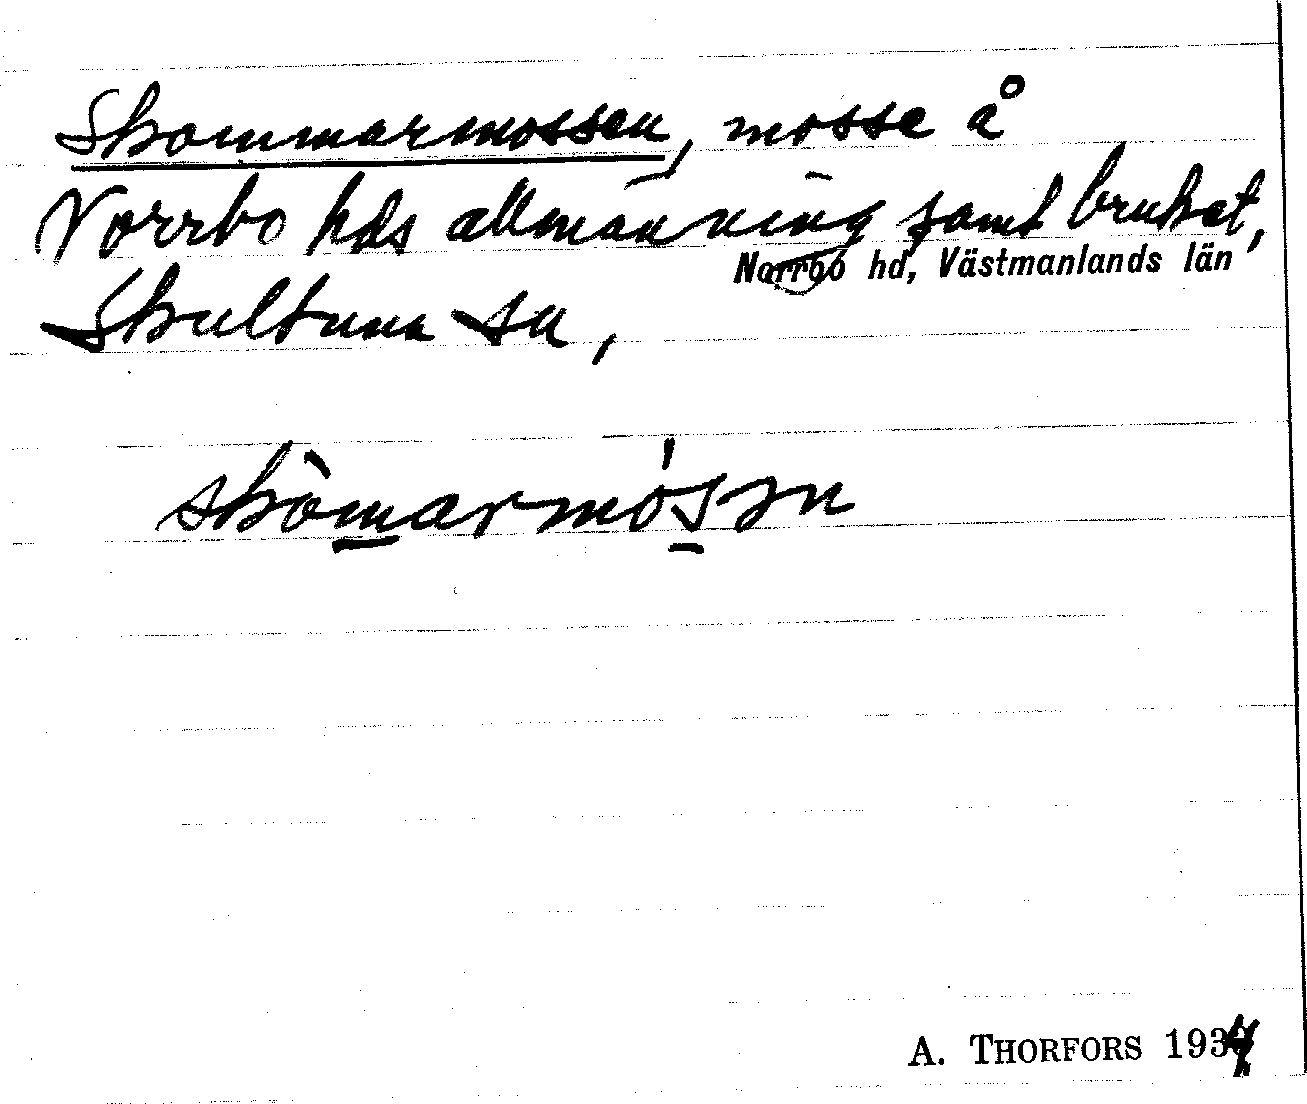 Skommarmossen, mosse å
Norrbo hds allmänning samt bruket,
Norrbo hd, Västmanlands län
Skultuna sn,
skòmarmósən
A. THORFORS 1934